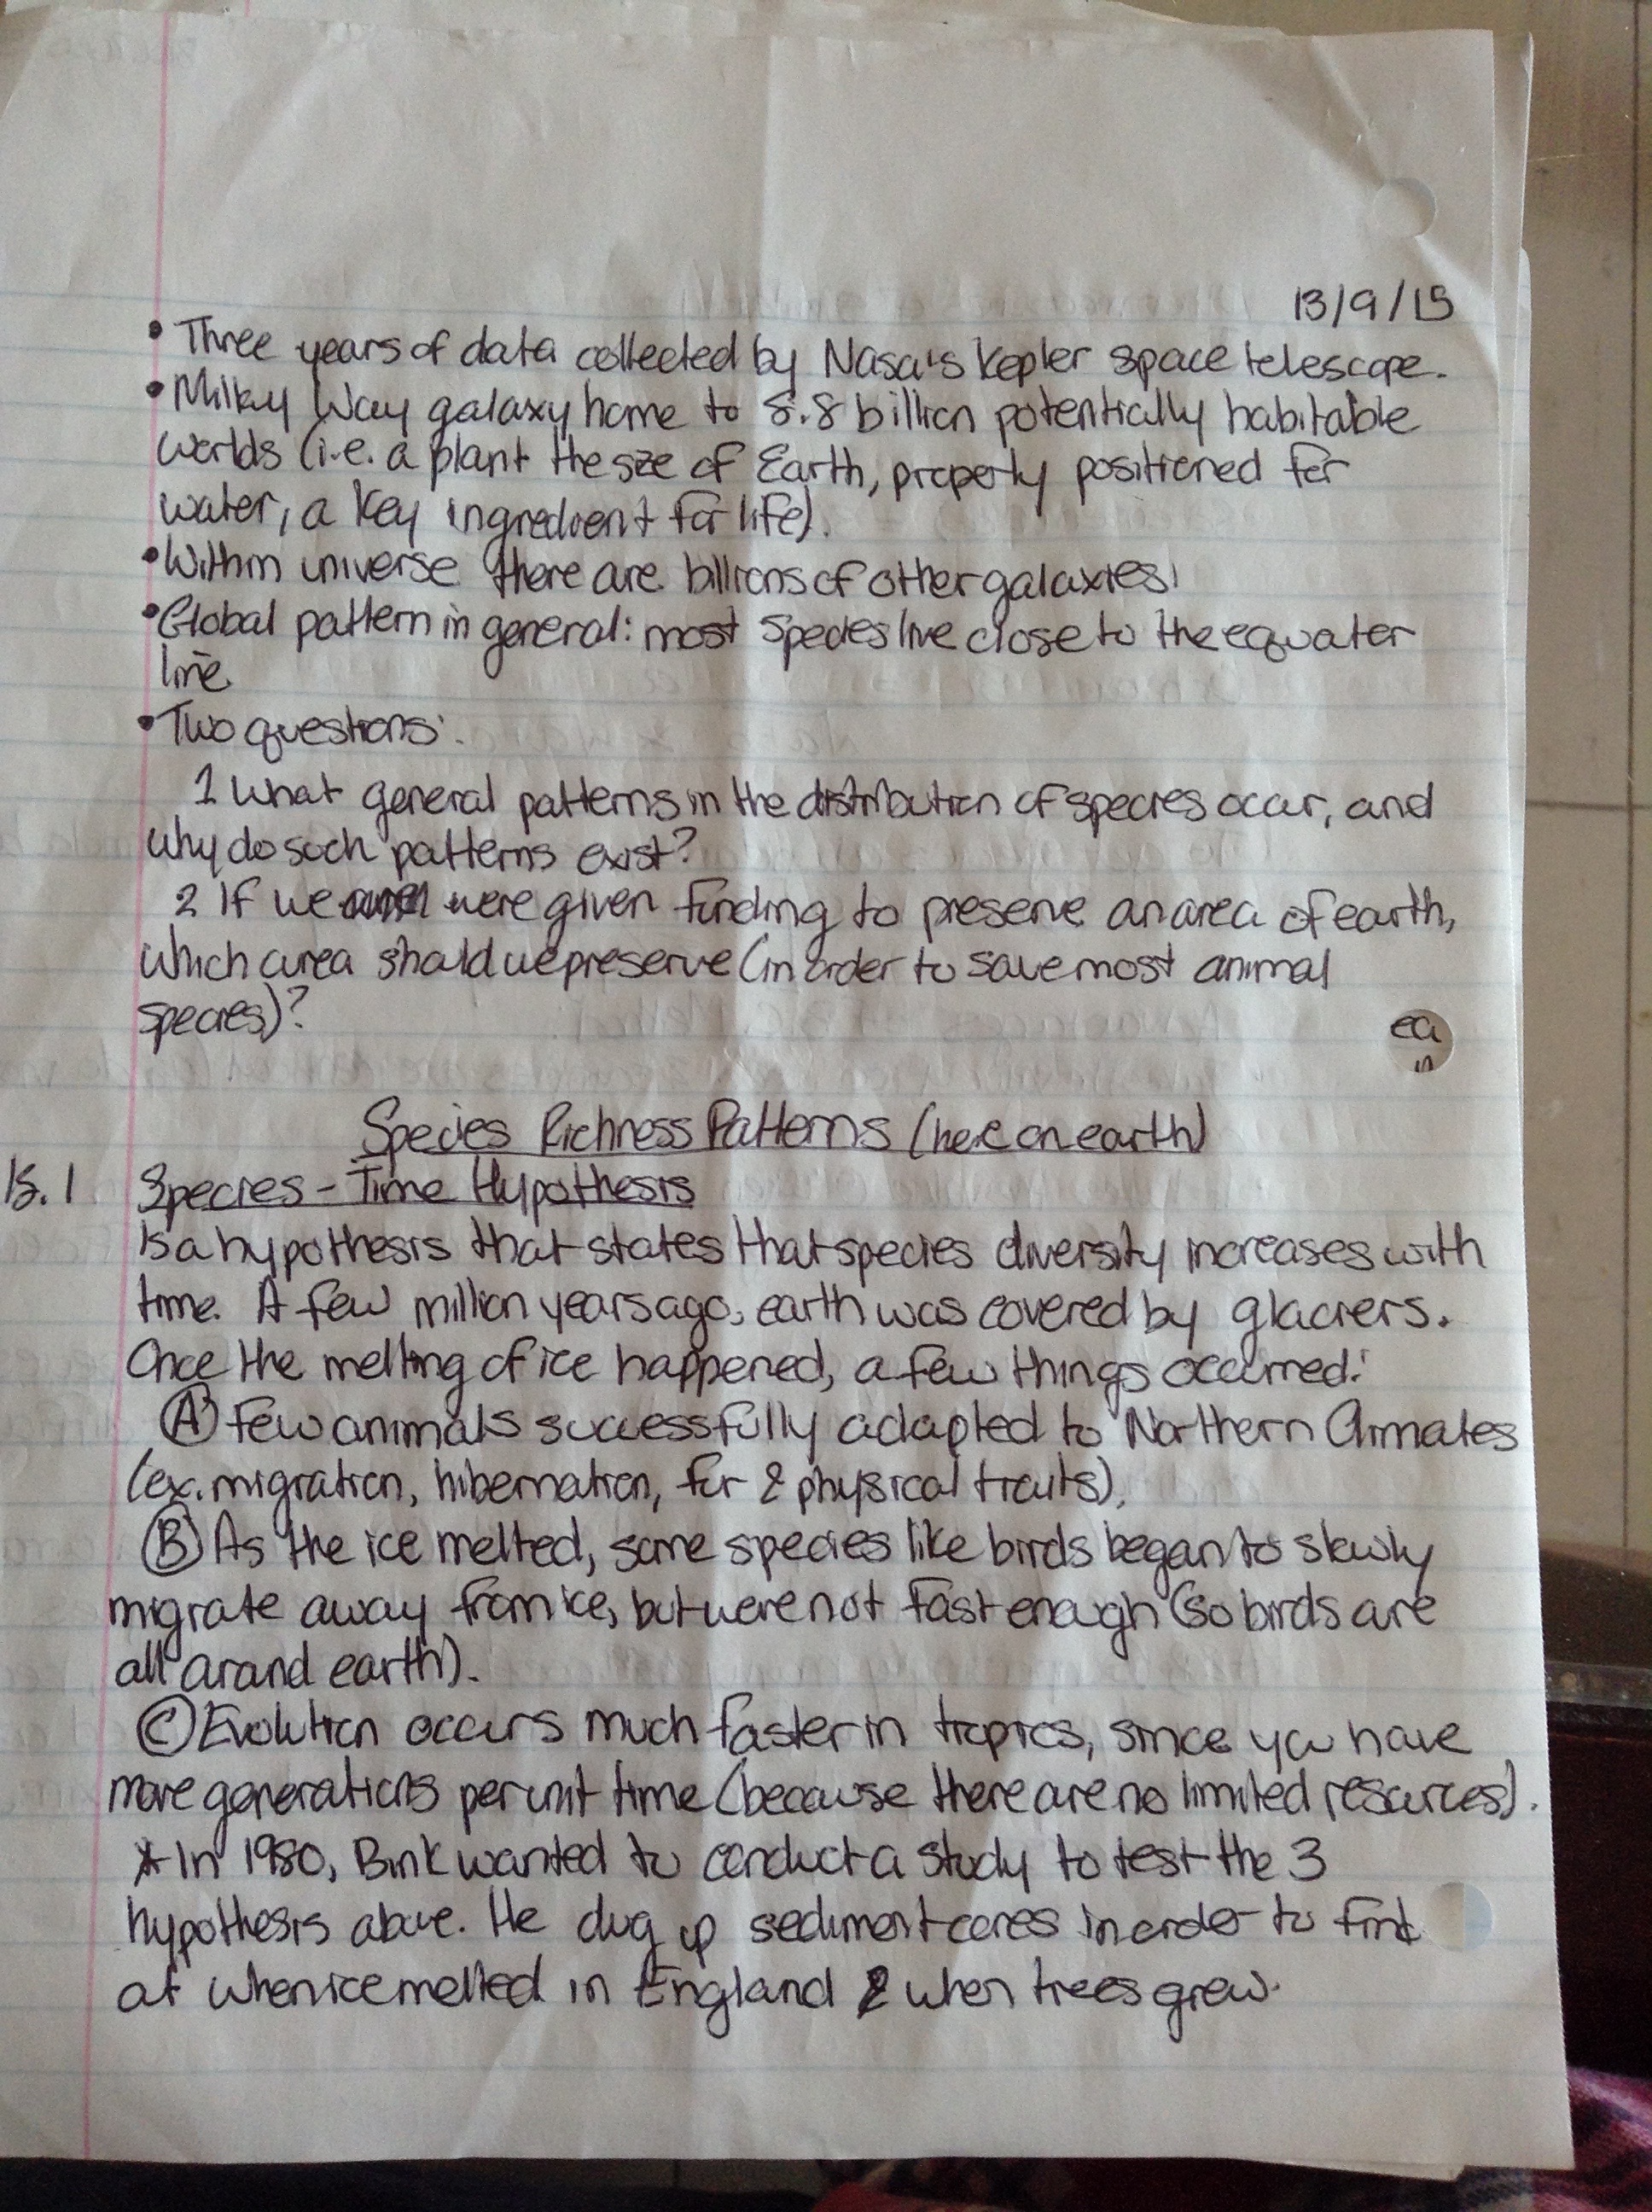 13/9/15
• Three years of data collected by Nasa's Kepler space telescope.
• Milky Way galaxy home to 8.8 billion potentially habitable
worlds (i.e. a plant the size of Earth, property positioned for
water, a key ingredient for life).
• Within universe there are billions of other galaxies.
• Global pattern in general: most species live close to the equater
line
• Two questions:
1 What general patterns in the distribution of species occur, and
why do such patterns exist?
2 If we were given funding to preserve an area of earth,
which area should we preserve (in order to save most animal
species)?
ea
in
Species Richness Patterns (here on earth)
15.1 Species - Time Hypothesis
Is a hypothesis that states that species diversity increases with
time. A few million years ago, earth was covered by glaciers.
Once the melting of ice happened, a few things occurred:
A Few animals successfully adapted to Northern Climates
(ex. migration, hibernation, fur & physical traits).
B As the ice melted, some species like birds began to slowly
migrate away from ice, but were not fast enough (so birds are
all around earth).
C Evolution occurs much faster in tropics, since you have
more generations per unit time (because there are no limited resources).
* In 1980, Bink wanted to conduct a study to test the 3
hypothesis above. He dug up sediment cores in order to find
at when ice melted in England & when trees grew.